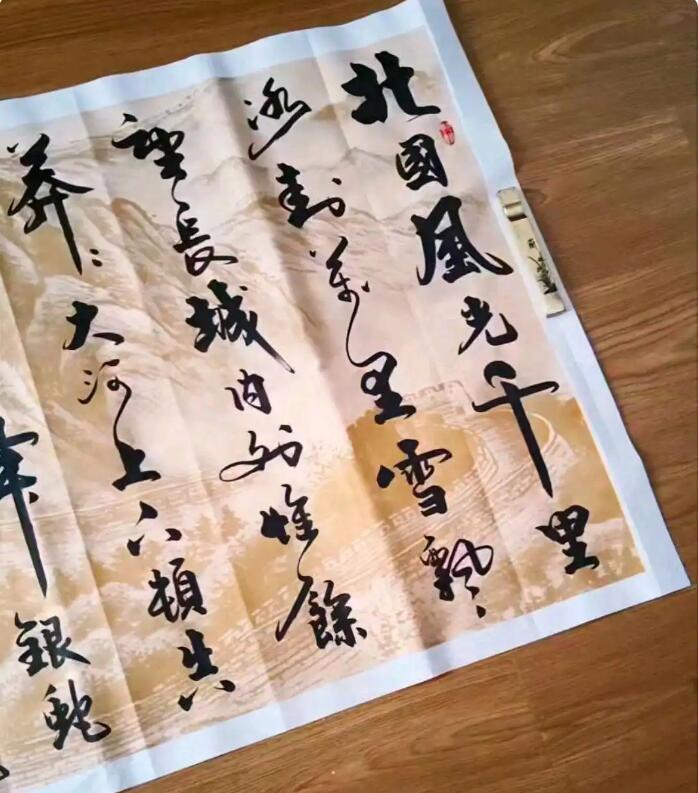 北國風光千里
冰封萬里雪飄
望長城内外惟餘
莽〻大河上下頓失
銀蛇